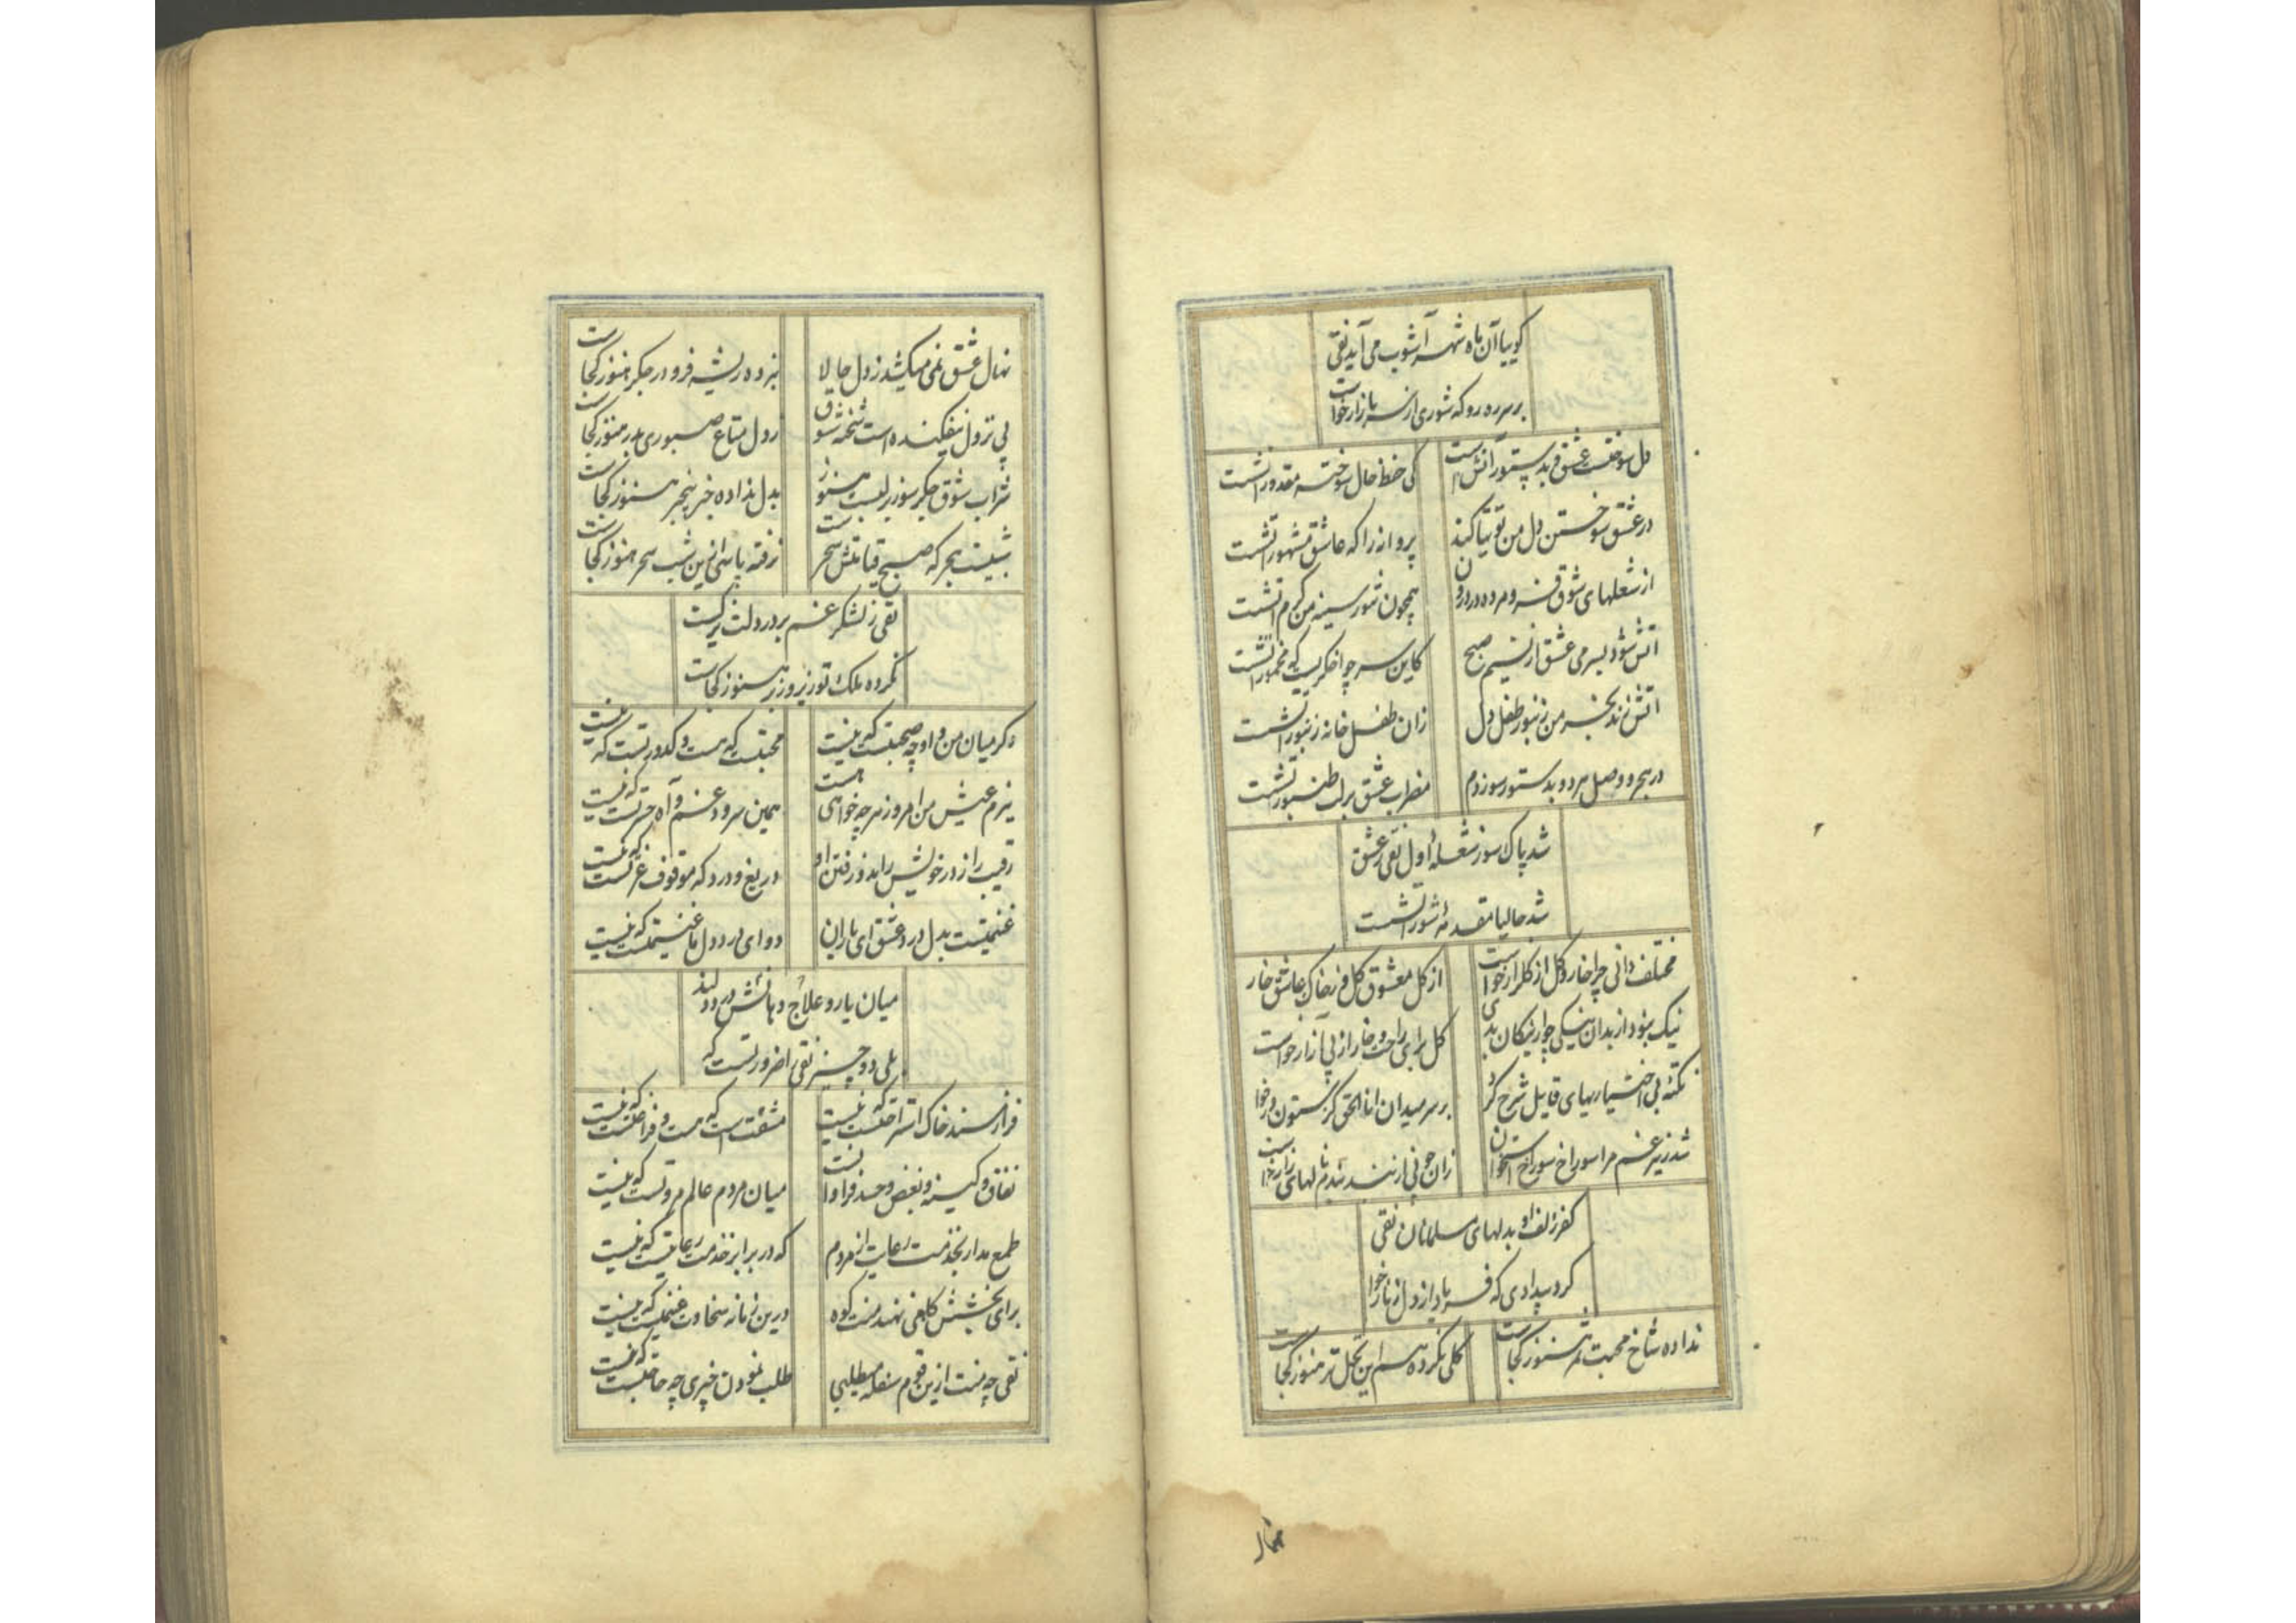 گوییا آن ماه شهر آشوب می آید نقی
بر سر ره رو که شوری از سر بازار خواست
دل سوخت عشق و بد پستور آتش است
کی خط حال سوخته مقدور آتشست
در عشق سوختن دل من توتیا کند
پروانه را که عاشق مشهور آتشست
از شعلهای شوق فسرومرده در درون
همچون تنور سینه من گرم آتشست
آتش شود بسر می عشق از نسیم صبح
کاین سر چو اخگریست که مخمور آتشست
آتش زند بخرمن زنبور طفل دل
زان طفل خانه زنبور آتشست
در هجر و وصل هر دو بدستور سوزدم
مضراب عشق بر لب طنبور آتشست
شد پاک سوز شعله اول نقی ز عشق
شد حالیا مقدمه شور آتشست
مختلف دانی چرا خار و گل از گلزار خواست
از گل معشوق گل وز خاک عاشق خار
نیک نبود از بدان نیکی چو از نیکان بدی
گل برای راحت و خار از پی آزار خواست
نکته بی اختیاریهای قایل شرح کرد
بر سر میدان انا الحق کز ستون دار خوا
شد ز تیر غم مرا سوراخ سوراخ استخوان
زان چو نی از بند بندم نالهای زار خواست
کفر زلف او بدلهای مسلمانان نقی
کرد بیدادی که فریاد از دل زنار خوا
نداده شاخ محبت ثمر هنوز کجاست
گلی نکرده سر این نخل تر هنوز کجاست
نهال عشق نمی میکشد ز دل حالا
نبرده ریشه فرو در جگر هنوز کجاست
پی نزول نیفکنده است شحنه شوق
ز دل متاع صبوری بدر هنوز کجاست
شراب شوق جگر سوز بر لبست هنوز
بدل نداده خبر خنجر هنوز کجاست
شبیست هجر که صبح قیامتش سحرست
نرفته پاسی ازین شب سحر هنوز کجاست
نقی ز لشکر غم بر در دلت گردیست
نکرده ملک تو زیر و زبر هنوز کجاست
دگر میان من و او چه صحبتست که نیست
محبتیست که هست و کدورتست که نیست
ببزم عیش من امروز هر چه خواهی هست
همین سرود غم و آه حسرتست که نیست
رقیب را ز در خویش راند و رفتن او
دریغ و درد که موقوف عزتست که نیست
غنیمتست بدل درد عشق ای یاران
دوای درد دل ما غنیمتست که نیست
میان یار و علاج دهانش در دو لبند
بلی دو چیز نقی را ضرورتست که
فراز مسند خاک استراحتست که نیست
مشقت است که هست و فراغتست که نیست
نفاق و کینه و بغض و حسد فراوانست
میان مردم عالم مروتست که نیست
طمع مدار بخدمت رعایت از مردم
که در برابر خدمت رعایتست که نیست
برای بخشش کاهی نهند منت کوه
درین زمانه سخاوت غنیمتست که نیست
نقی چه منت ازین قوم سفله میطلبی
طلب نمودن چیزی چه حاجتست که نیست
نهال